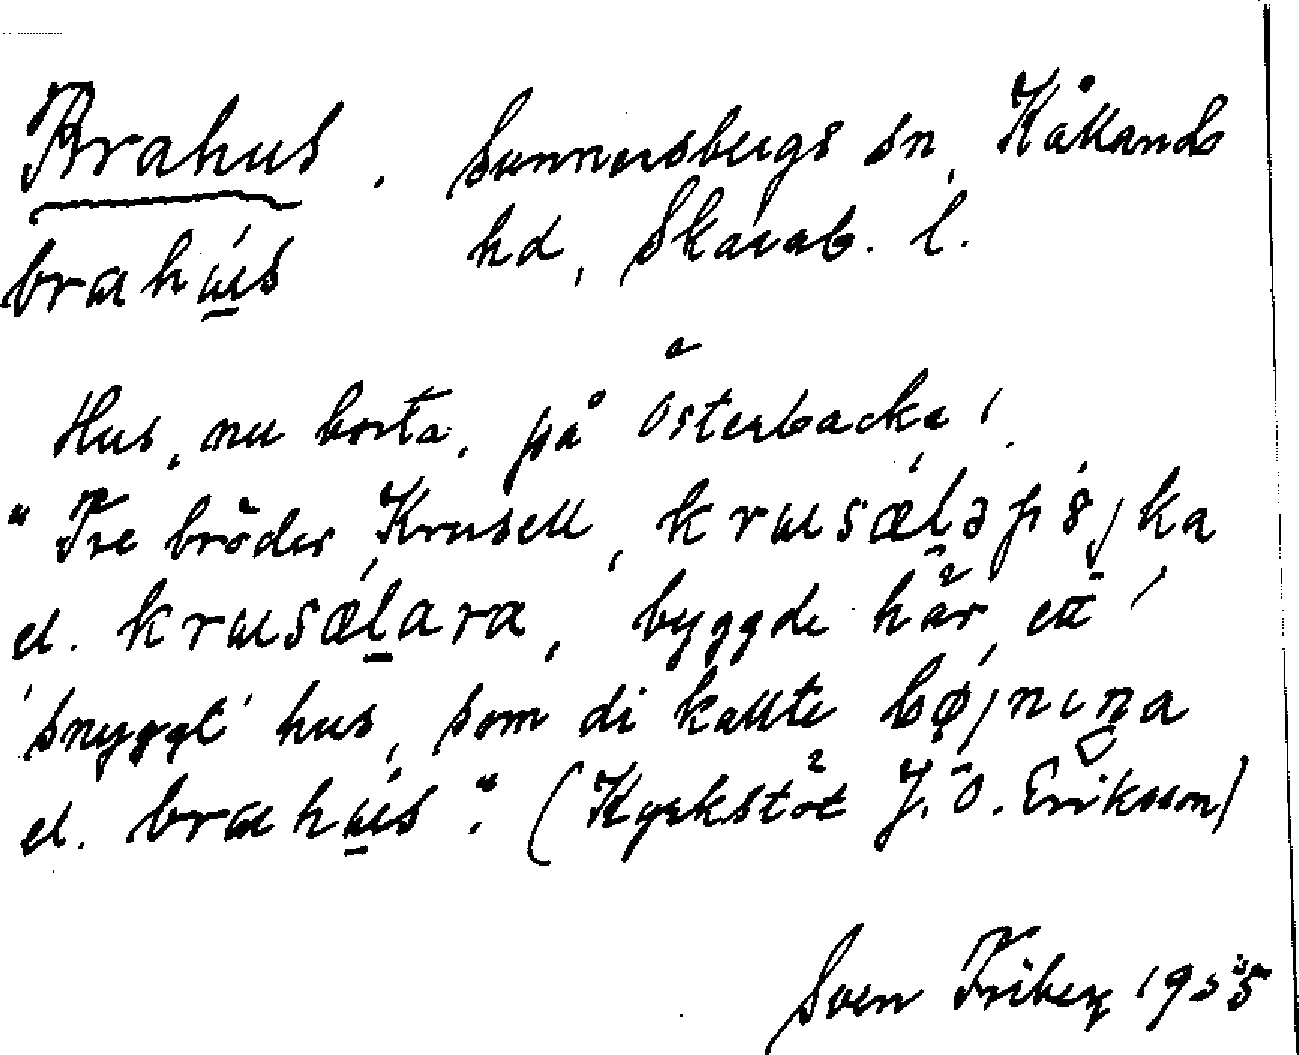 Brahus. Sunnersbergs sn, Kållands
brahús hd, Skarab. l.
Hus, nu borta, på Österbacka.
"Tre bröder Krusell, krusǽləpöjka
el. krusǽlara, byggde här ett
'snyggt' hus, som di kallte bøjniŋa
el. brahús." (Kyrkstöt J. O. Eriksson)
Sven Friberg 1955